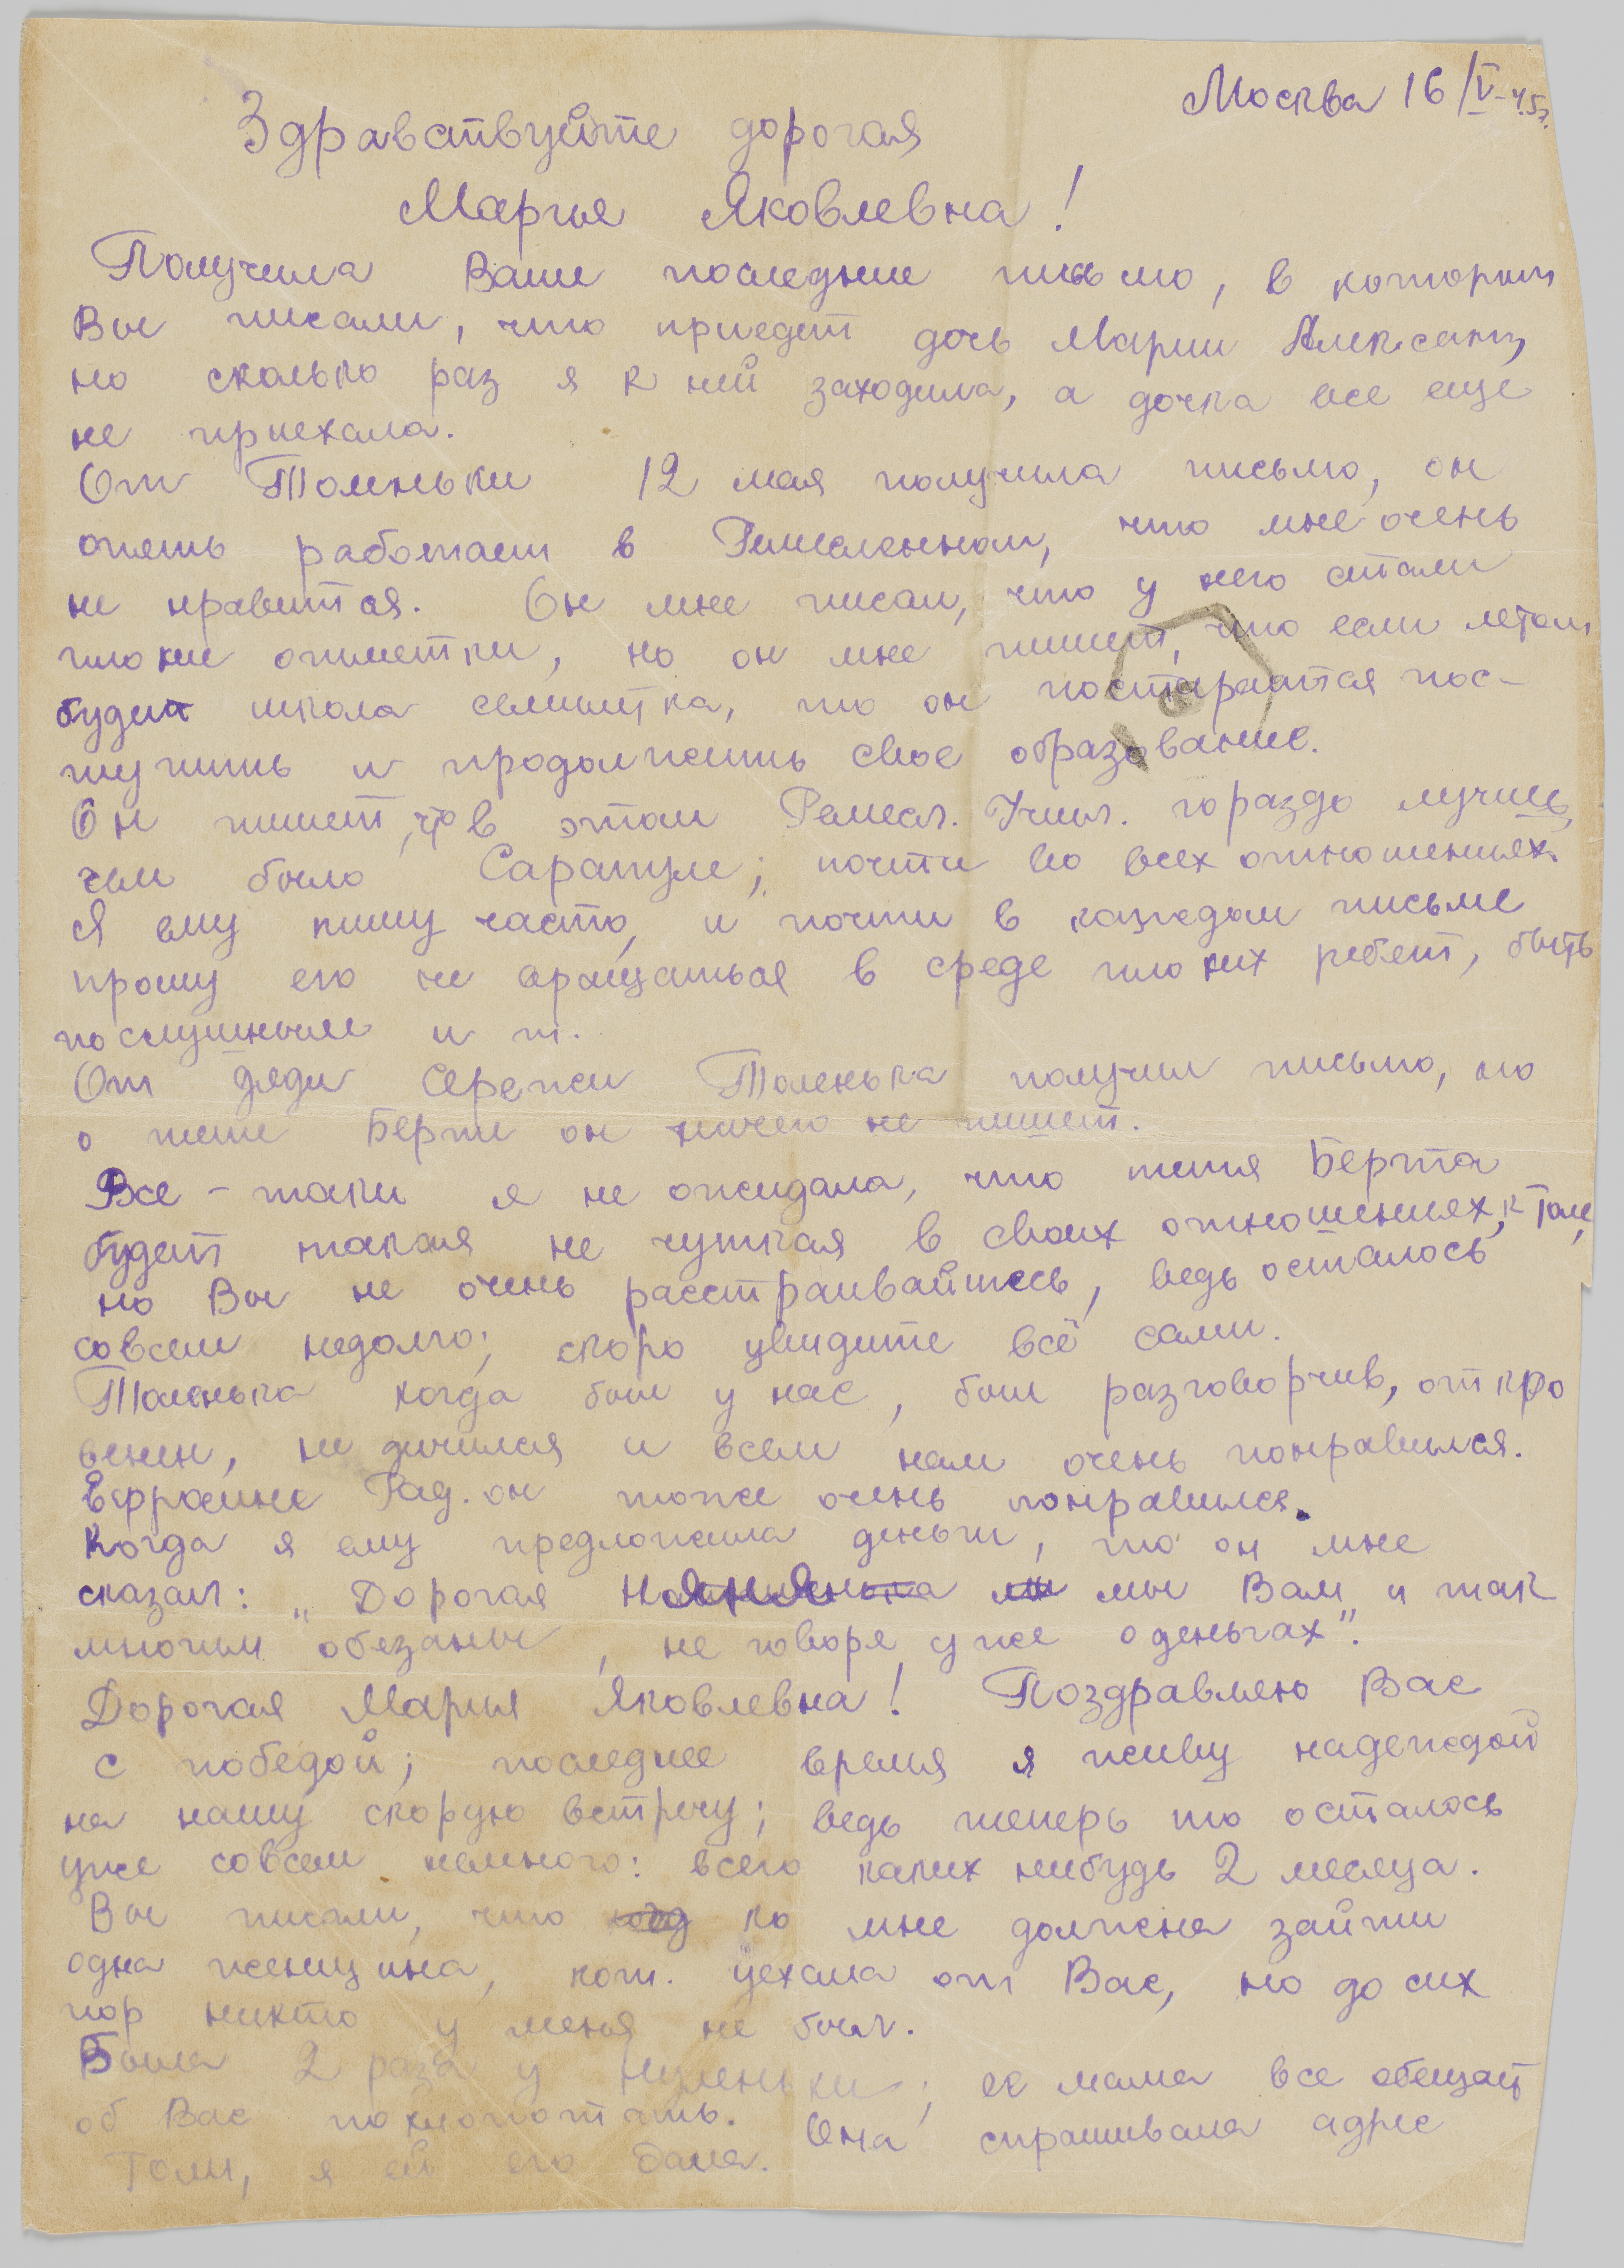 Москва 16/V-45г.
Здравствуйте дорогая
Марья Яковлевна!
Получила Ваше последнее письмо, в котором
Вы писали, что приедет дочь Марии Александ,
но сколько раз я к ней заходила, а дочка все еще
не приехала.
От Толеньки 12 мая получила письмо, он
опять работает в Ремесленном, что мне очень
не нравится. Он мне писал, что у него стали
плохие отметки, но он мне пишет, что если летом
будет школа семилетка, то он постарается пос-
тупить и продолжить свое образование.
Он пишет, что в этом Ремесл. Учил. гораздо лучше,
чем было Сарапуле; почти во всех отношениях.
Я ему пишу часто, и почти в каждом письме
прошу его не вращаться в среде плохих ребят, быть
послушным и т.
От дяди Сережи Толенька получил письмо, но
о тете Берте он ничего не пишет.
Все-таки я не ожидала, что тетя Берта
будет такая не чуткая в своих отношениях, к Толе,
но Вы не очень расстраивайтесь, ведь осталось
совсем недолго; скоро увидите всё сами.
Толенька когда был у нас, был разговорчив, откро
венен, не дичился и всем нам очень понравился.
Ефросине Рад. он тоже очень понравился.
Когда я ему предложила деньги, то он мне
сказал: „Дорогая няня мы Вам и так
многим обязаны, не говоря уже о деньгах".
Дорогая Марья Яковлевна! Поздравляю Вас
с победой; последнее время я живу надеждой
на нашу скорую встречу; ведь теперь то осталось
уже совсем немного: всего каких нибудь 2 месяца.
Вы писали, что ко мне должна зайти
одна женщина, кот. уехала от Вас, но до сих
пор никто у меня не был.
Была 2 раза у ; её мама все обещает
об Вас похлопотать. Она спрашивала адрес
Толи, я ей его дала.